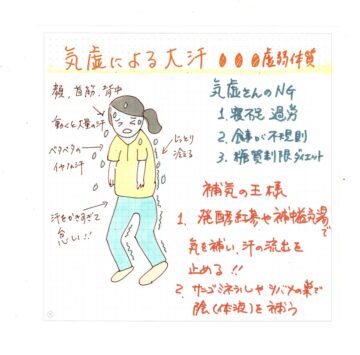 気虚による大汗 虚弱体質
顔、首筋、背中
動くと大量の汗
ベタベタの
イヤな汗
汗をかきすぎて
息しい!!
じっとり
冷える
気虚さんのNG
1. 寝不足 過労
2. 食事が不規則
3. 糖質制限ダイエット
補気の王様
1. 発酵紅参や補中益気湯で
気を補い、汗の流出を
止める!!
2. サンゴミネラルやツバメの巣で
陰(体液)を補う